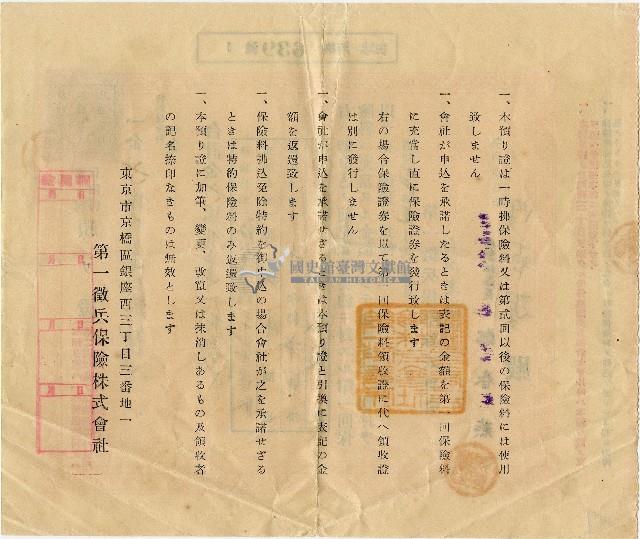 一、本預り證は一時拂保險料又は第貳回以後の保險料には使用
致しません
一、會社が申込を承諾したるときは表記の金額を第一回保險料
に充當し直に保險證券を發行致します
右の場合保險證券を以て第一回保險料領收證に代へ領收證
は別に發行しません
一、會社が申込を承諾せざるときは本預り證と引換に表記の金
額を返還致します
一、保險料拂込免除特約を御申込の場合會社が之を承諾せざる
ときは特約保險料のみ返還致します
一、本預り證に加筆、變更、改竄又は抹消しあるもの及領收者
の記名捺印なきものは無效とします
東京市京橋區銀座西三丁目三番地一
第一徵兵保險株式會社
國史館臺灣文獻館
TAIWAN HISTORICA